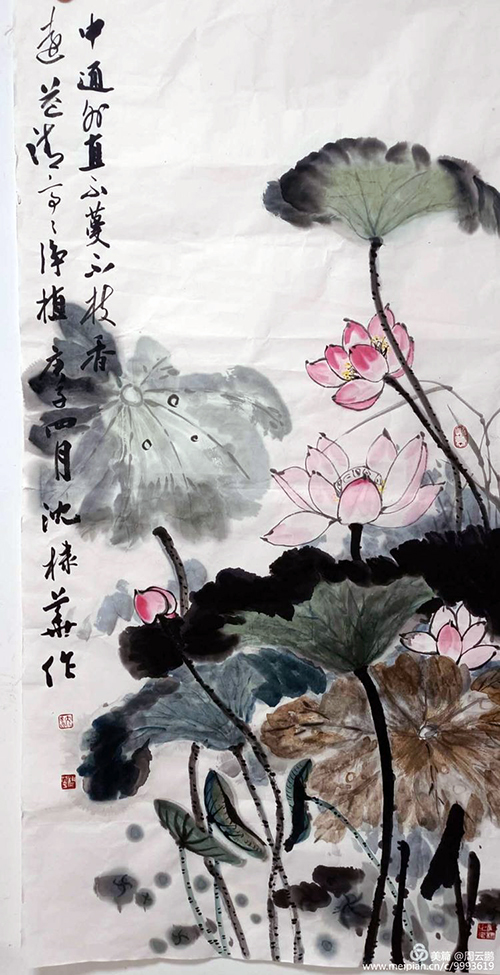 中通外直不蔓不枝香
遠益清亭〻净植 庚子四月沈棣華作
美篇 @周云影
www.meipian.cn/c/9993619